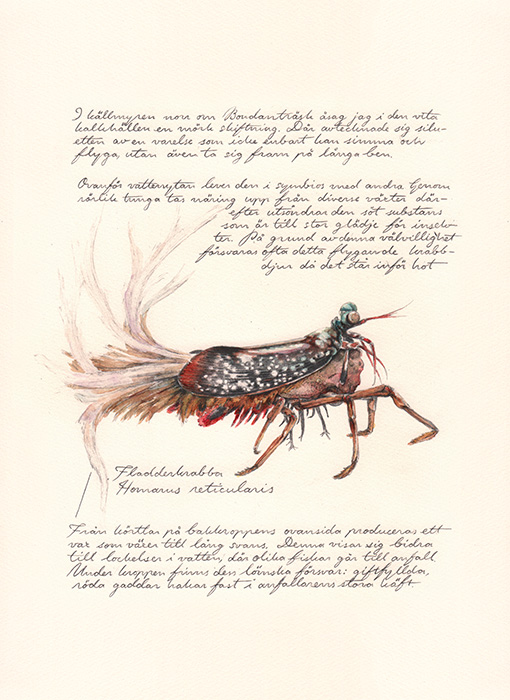 I källmyren norr om Bondanträsk åsåg jag i den vita
kalkhällen en mörk skiftning. Där avtecknade sig silu-
etten av en varelse som icke enbart kan simma och
flyga, utan även ta sig fram på långa ben.
Ovanför vattenytan lever den i symbios med andra. Genom
rörlik tunga tas näring upp från diverse växter där-
efter utsöndrar den söt substans
som är till stor glädje för insek-
ter. På grund av denna välvillighet
försvaras ofta detta flygande krabb-
djur då det står inför hot
Fladderkrabba
Homarus reticularis
Från körtlar på bakkroppens ovansida produceras ett
vax som växer till lång svans. Denna visar sig bidra
till lockelser i vatten, där olika fiskar går till anfall.
Under kroppen finns den lömska försvar: giftfyllda,
röda gaddar hakar fast i anfallarens stora käft.